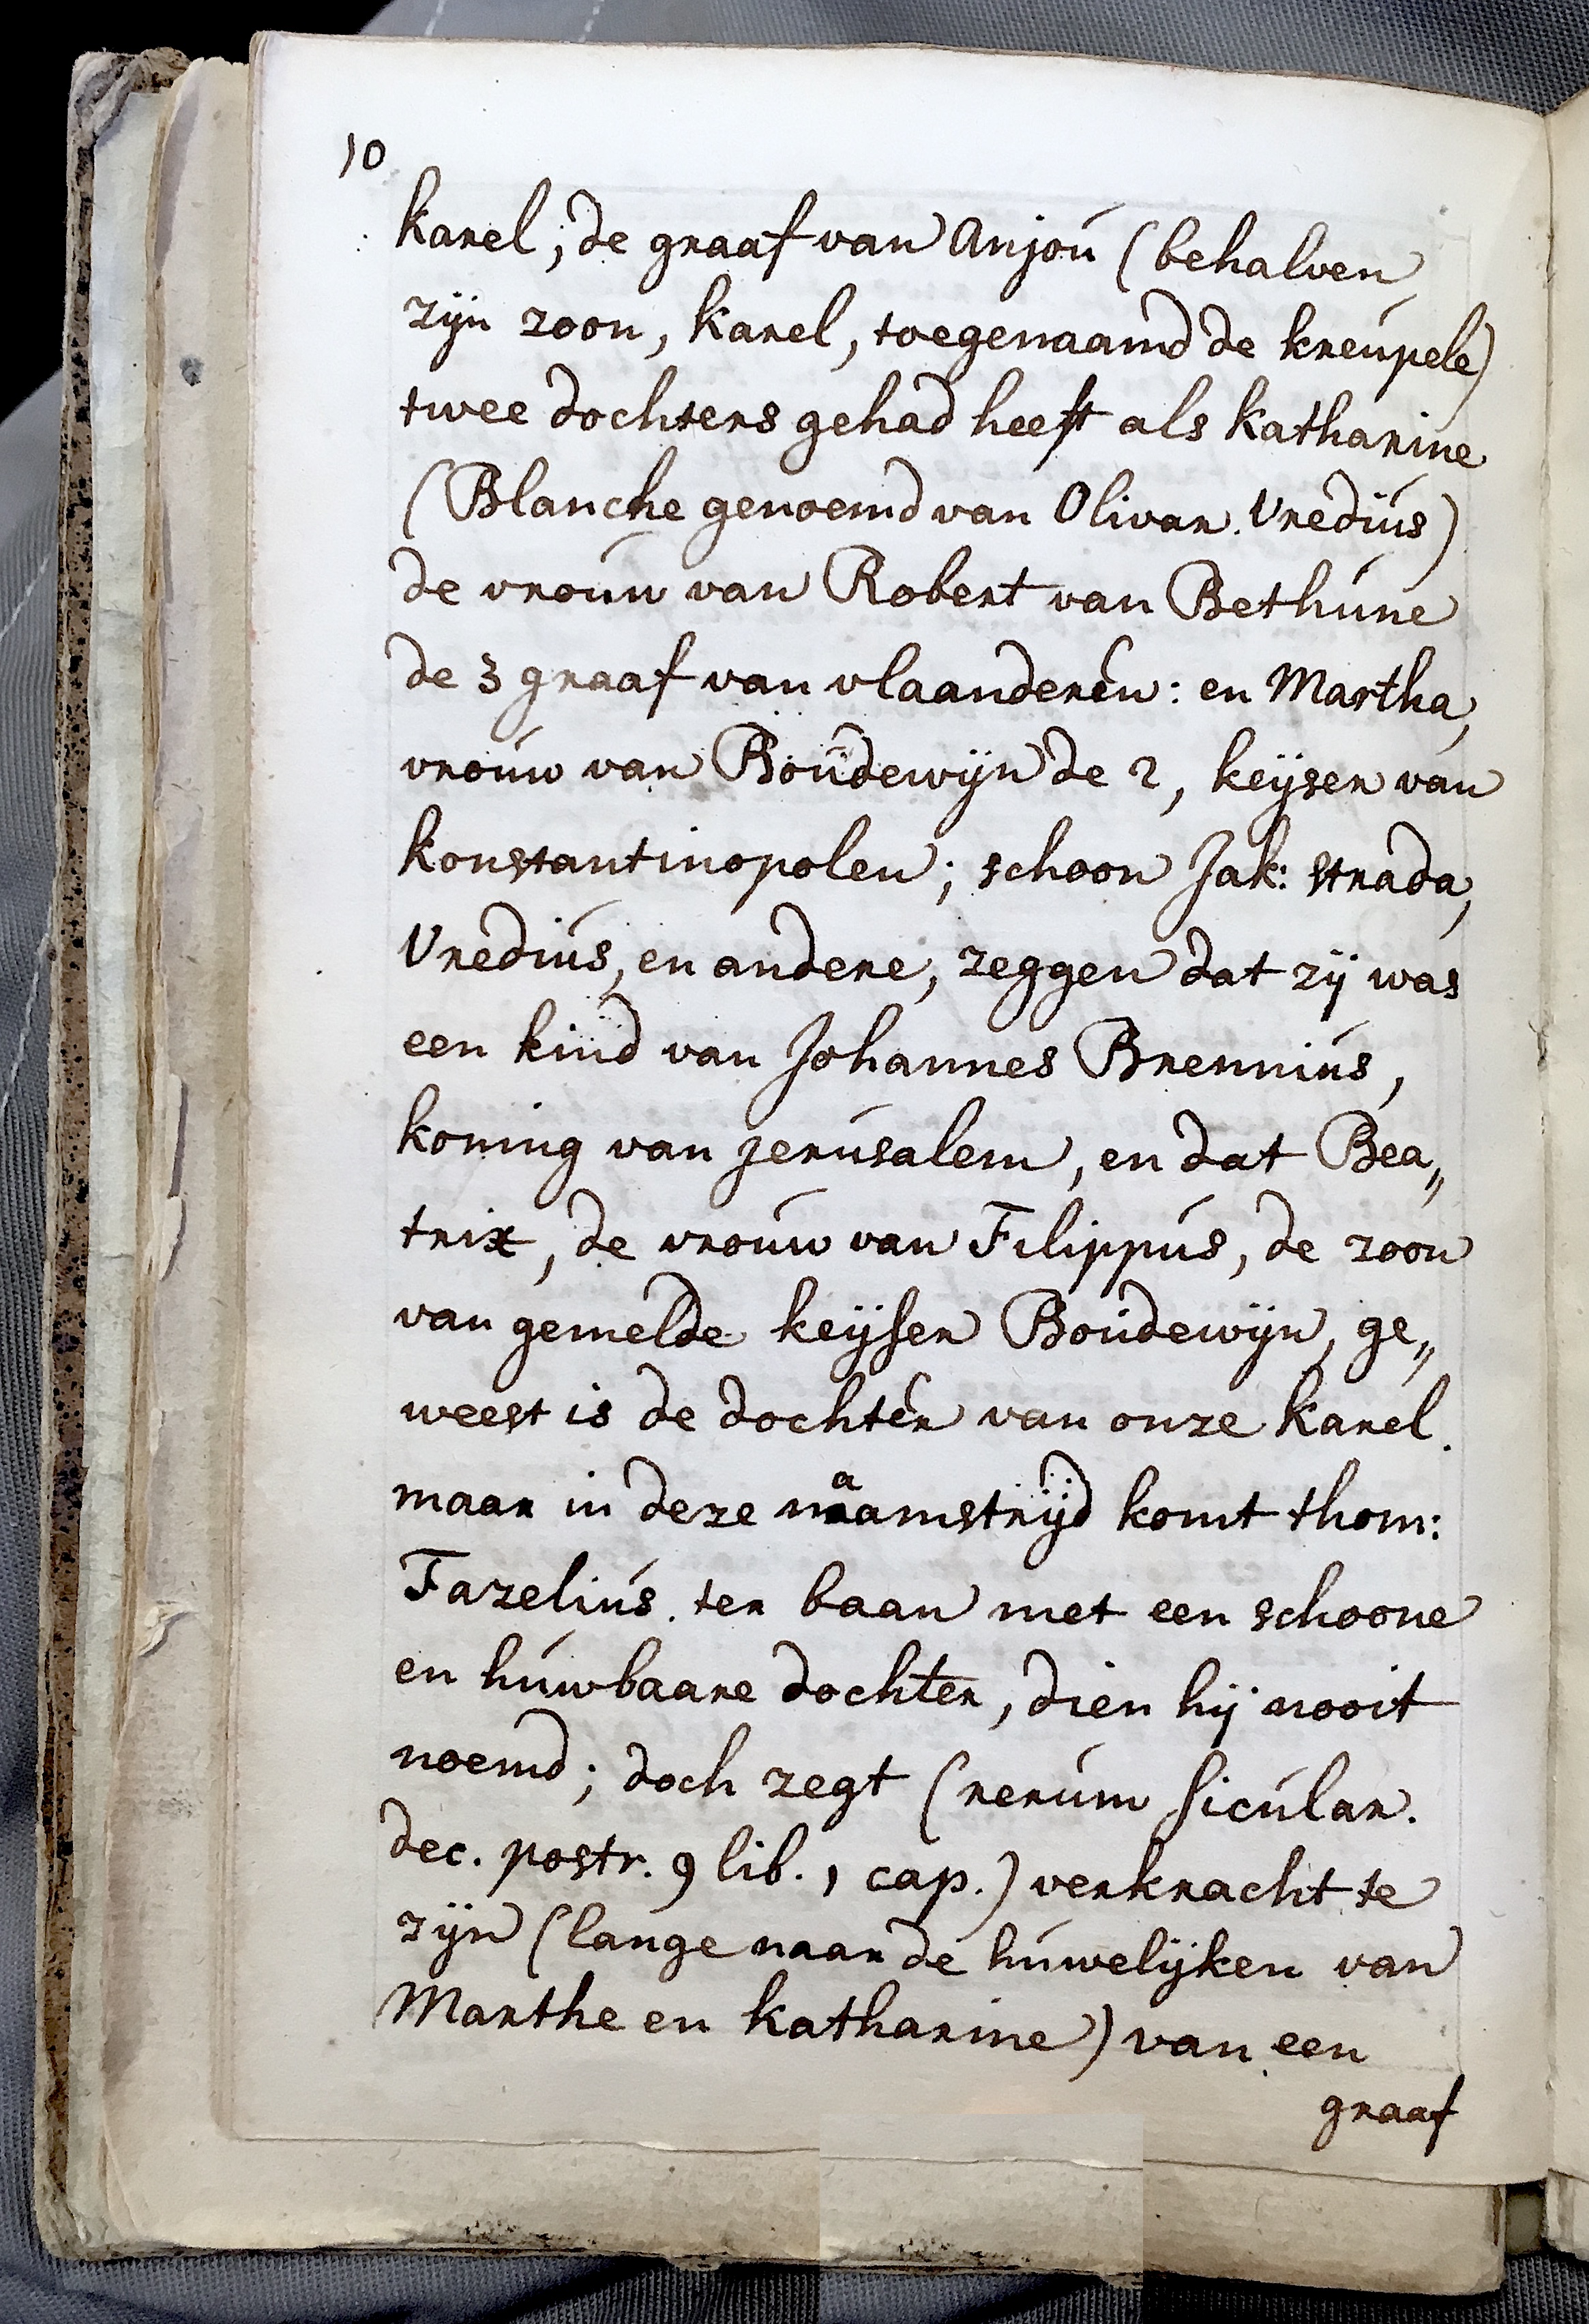 10
karel, de graaf van Anjou (behalven
zijn zoon, karel, toegenaamd de kreupele)
twee dochters gehad heeft als katharine
(Blanche genoemd van Olivar. Vredius)
de vrouw van Robert van Bethune
de 3 graaf van vlaanderen: en Martha,
vrouw van Boudewijn de 2, keijser van
konstantinopolen; schoon Jak: strada,
Vredius, en andere, zeggen dat zij was
een kind van Johannes Brennius,
koning van jerusalem, en dat Bea„
trix, de vrouw van Filippus, de zoon
van gemelde keijser Boudewijn, ge„
weest is de dochter van onze karel.
maar in deze naamstrijd komt thom:
Fazelius ter baan met een schoone
en huwbaare dochter, dien hij nooit
noemd; doch zegt (rerum sicular.
dec. postr. 9 lib. 1 cap.) verkracht te
zijn (lange naar de huwelijken van
Marthe en katharine) van een
graaf